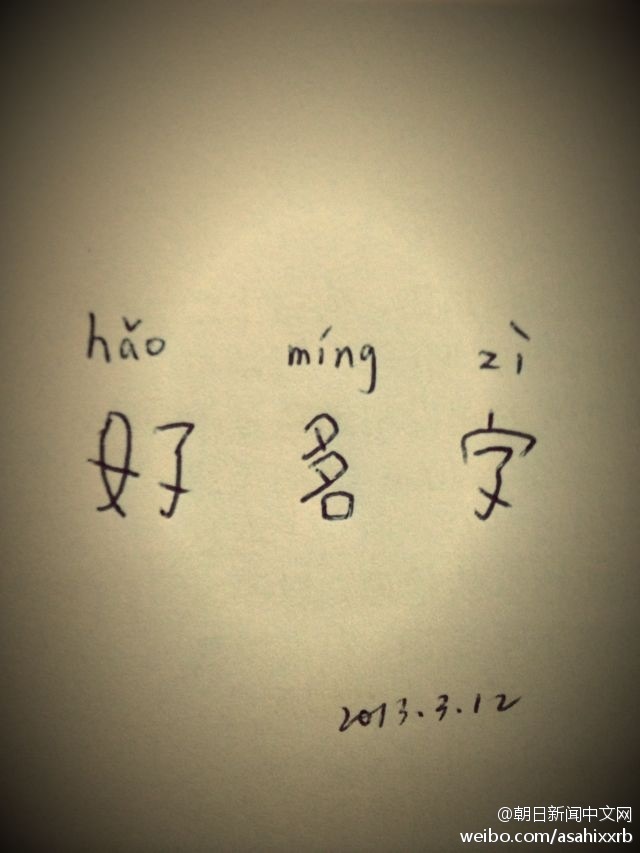 hǎo míng zì
好 名 字
2013.3.12
@朝日新闻中文网
weibo.com/asahixxrb